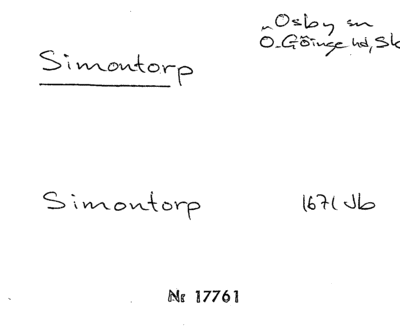 Osby sn
Ö. Göinge hd, Sk
Simontorp
Simontorp 1671 Jb
Nr 17761